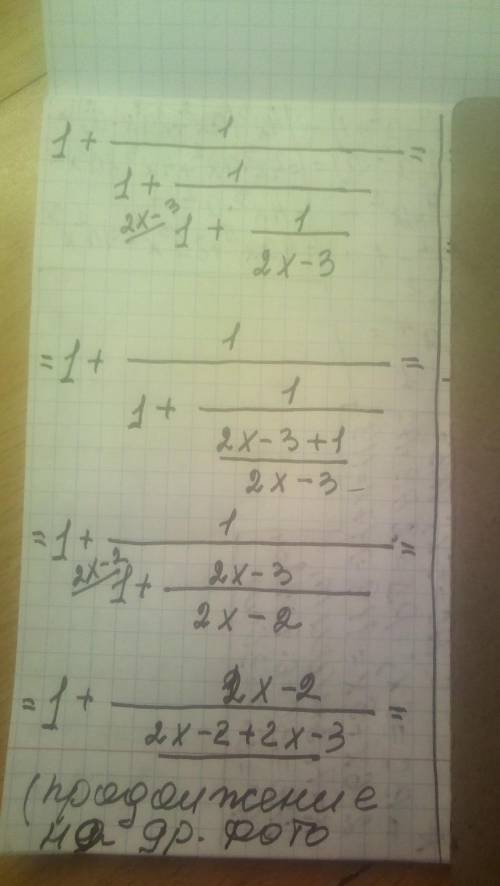 1 + 1 / (1 + 1 / (2x-3 1 + 1 / (2x-3))) =
= 1 + 1 / (1 + 1 / ((2x-3+1) / (2x-3))) =
= 1 + 1 / (2x-2 1 + (2x-3) / (2x-2)) =
= 1 + (2x-2) / (2x-2+2x-3) =
(продолжение
на др. фото